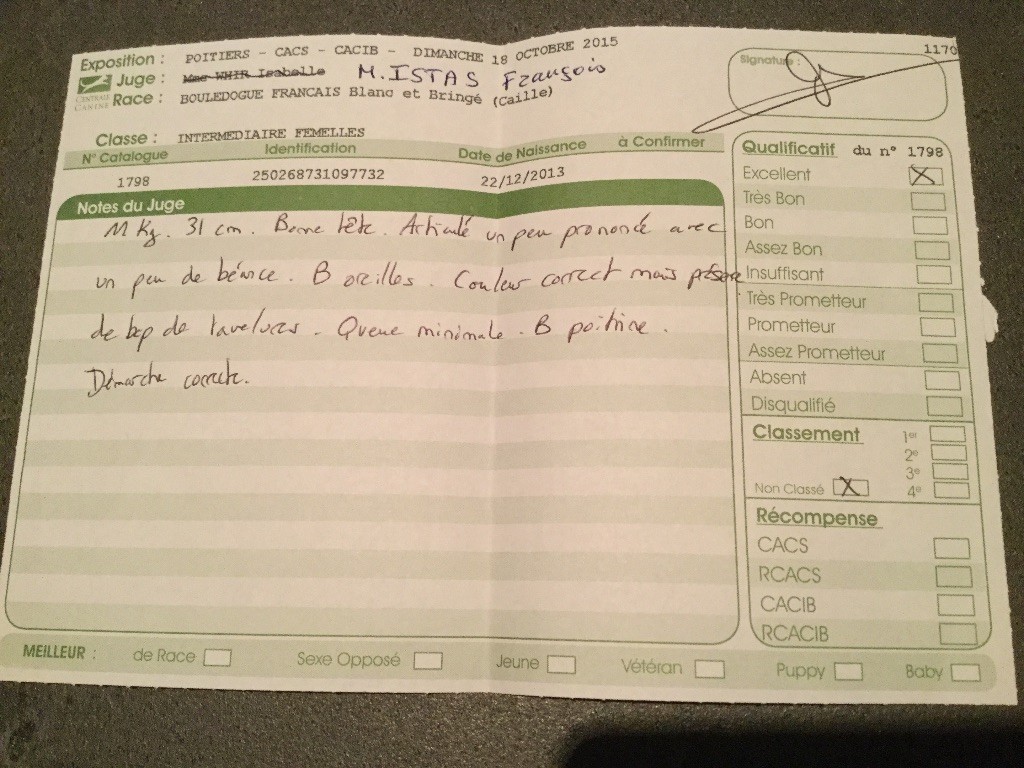 Exposition : POITIERS - CACS - CACIB - DIMANCHE 18 OCTOBRE 2015
1170
Juge : Mme WHIR Isabelle M. ISTAS François
CENTRALE CANINE
Race : BOULEDOGUE FRANCAIS Blanc et Bringé (Caille)
Signature :
Classe : INTERMEDIAIRE FEMELLES
N° Catalogue Identification Date de Naissance à Confirmer
1798 250268731097732 22/12/2013
Notes du Juge
M Kg. 31 cm. Bonne tête. Articulé un peu prononcé avec
un peu de béance. B oreilles. Couleur correct mais présence
de bcp de tavelures. Queue minimale. B poitrine.
Démarche correcte.
Qualificatif du n° 1798
Excellent X
Très Bon
Bon
Assez Bon
Insuffisant
Très Prometteur
Prometteur
Assez Prometteur
Absent
Disqualifié
Classement 1er
2e
3e
Non Classé X 4e
Récompense
CACS
RCACS
CACIB
RCACIB
MEILLEUR : de Race Sexe Opposé Jeune Vétéran Puppy Baby